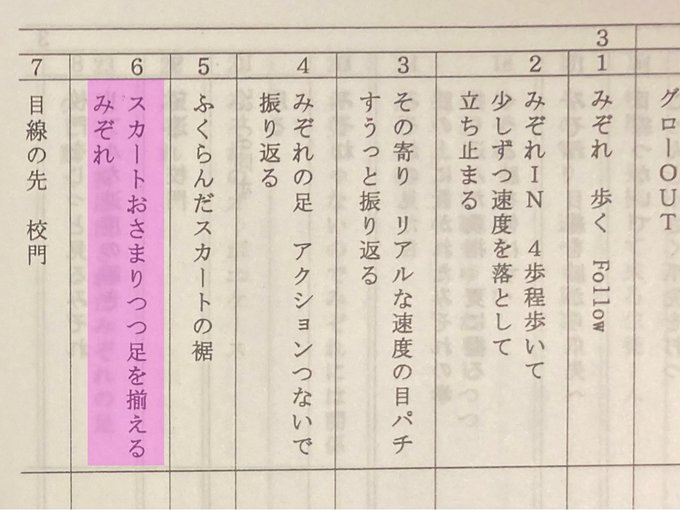 グローOUT
3
1
みぞれ　歩く　Follow
2
みぞれIN　4歩程歩いて
少しずつ速度を落として
立ち止まる
3
その寄り　リアルな速度の目パチ
すうっと振り返る
4
みぞれの足　アクションつないで
振り返る
5
ふくらんだスカートの裾
6
スカートおさまりつつ足を揃える
みぞれ
7
目線の先　校門